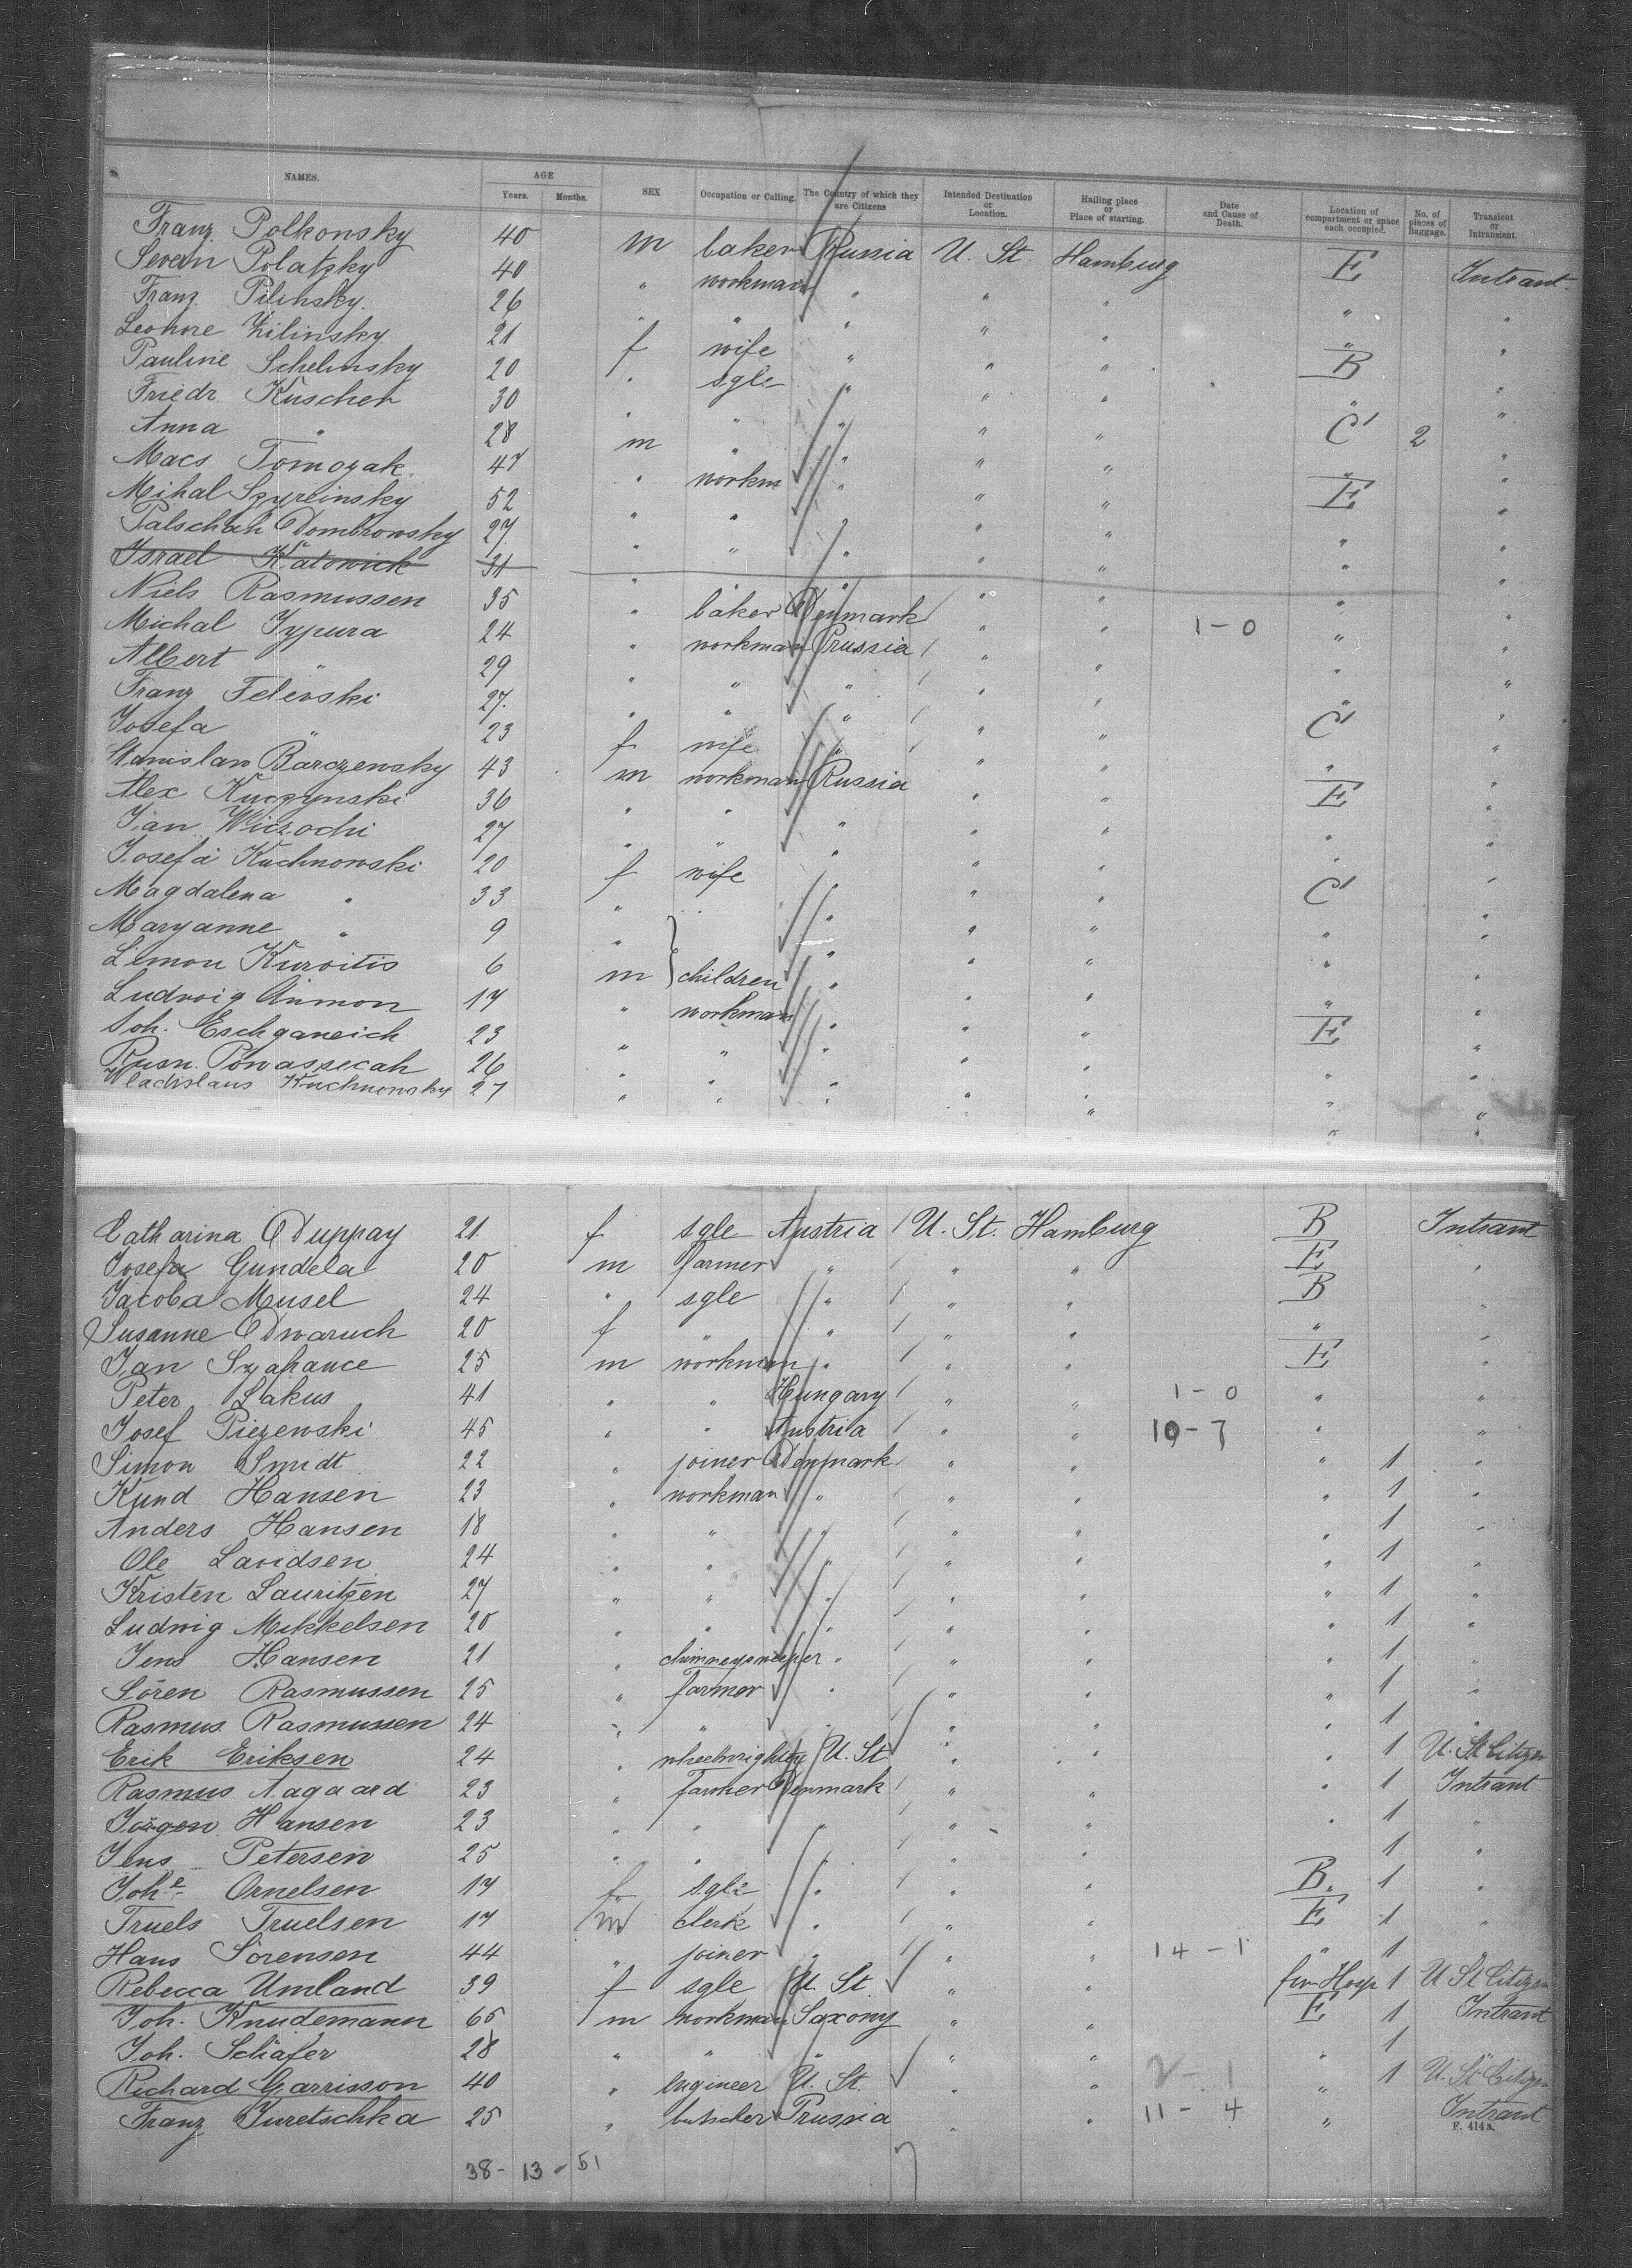 NAMES. AGE Years. Months. SEX Occupation or Calling. The Country of which they are Citizens Intended Destination or Location. Hailing place or Place of starting. Date and Cause of Death. Location of compartment or space each occupied. No. of pieces of Baggage. Transient or Intransient.
Franz Polkonsky 40 m baker Russia U. St. Hamburg E Intrant.
Severin Polatzky 40 " workman " " " " "
Franz Pilinsky 26 " " " " " " "
Leonore Zilinsky 21 f wife " " " B "
Pauline Schelinsky 20 " sgle " " " " "
Friedr Kuscher 30 " " " " " C 2 "
Anna " 28 m " " " " " "
Macs Tomozak 47 " workm " " " E "
Mihal Szyreinsky 52 " " " " " " "
Palschah Dombrowsky 27 " " " " " " "
Israel Katowick 31 " " " " " "
Niels Rasmussen 35 " baker Denmark " " 1-0 " "
Michal Jypura 24 " workman Prussia " " " "
Albert " 29 " " " " " "
Franz Felevski 27 " " " " " C "
Josefa " 23 f wife " " " " "
Stanislaw Barczewsky 43 m workman Russia " " E "
Alex Kuczynski 36 " " " " " " "
Jan Wiczochi 27 " " " " " " "
Josefa Kuchnowski 20 f wife " " " C "
Magdalena " 33 " " " " " " "
Maryanne " 9 " " " " " "
Simon Kuroitis 6 m children " " " " "
Ludwig Aumon 17 " workman " " " E "
Joh. Eschganeich 23 " " " " " " "
Rusn. Powassecah 26 " " " " " " "
Wladislaus Kuchnowsky 27 " " " " " " "
Catharina Duppay 21 f sgle Austria U. St. Hamburg B Intrant
Josefa Gundela 20 m farmer " " " E "
Jacoba Musel 24 " sgle " " " B "
Susanne Dwaruch 20 f " " " " " "
Jan Szafrance 25 m workman " " " E "
Peter Lakus 41 " " Hungary " " 1-0 " "
Josef Piezewski 45 " " Austria " " 10-7 " "
Simon Smidt 22 " joiner Denmark " " " 1 "
Kund Hansen 23 " workman " " " " 1 "
Anders Hansen 18 " " " " " " 1 "
Ole Lavidsen 24 " " " " " " 1 "
Kristen Lauritzen 27 " " " " " " 1 "
Ludwig Mikkelsen 20 " " " " " " 1 "
Jens Hansen 21 " chimneysweeper " " " " 1 "
Sören Rasmussen 25 " farmer " " " " 1 "
Rasmus Rasmussen 24 " " " " " " 1 "
Erik Eriksen 24 " wheelwrighter U. St " " " 1 U. St Citizen
Rasmus Aagaard 23 " farmer Denmark " " " 1 Intrant
Jörgen Hansen 23 " " " " " " 1 "
Jens Petersen 25 " " " " " 1 "
Johe Ornelsen 17 f sgle " " " B. 1 "
Truels Truelsen 17 m clerk " " " E 1 "
Hans Sörensen 44 " joiner " " " 14-1 " 1 "
Rebecca Umland 39 f sgle U. St. " " fm Hosp 1 U St Citizen
Joh. Knudemann 65 m workman Saxony " " E 1 Intrant
Joh. Schäfer 28 " " " " " " 1 "
Richard Garrisson 40 " Engineer U. St. " " 2-1 " 1 U. St Citizen
Franz Juretschka 25 " butscher Prussia " " 11-4 " Intrant
F. 414a.
38-13-51